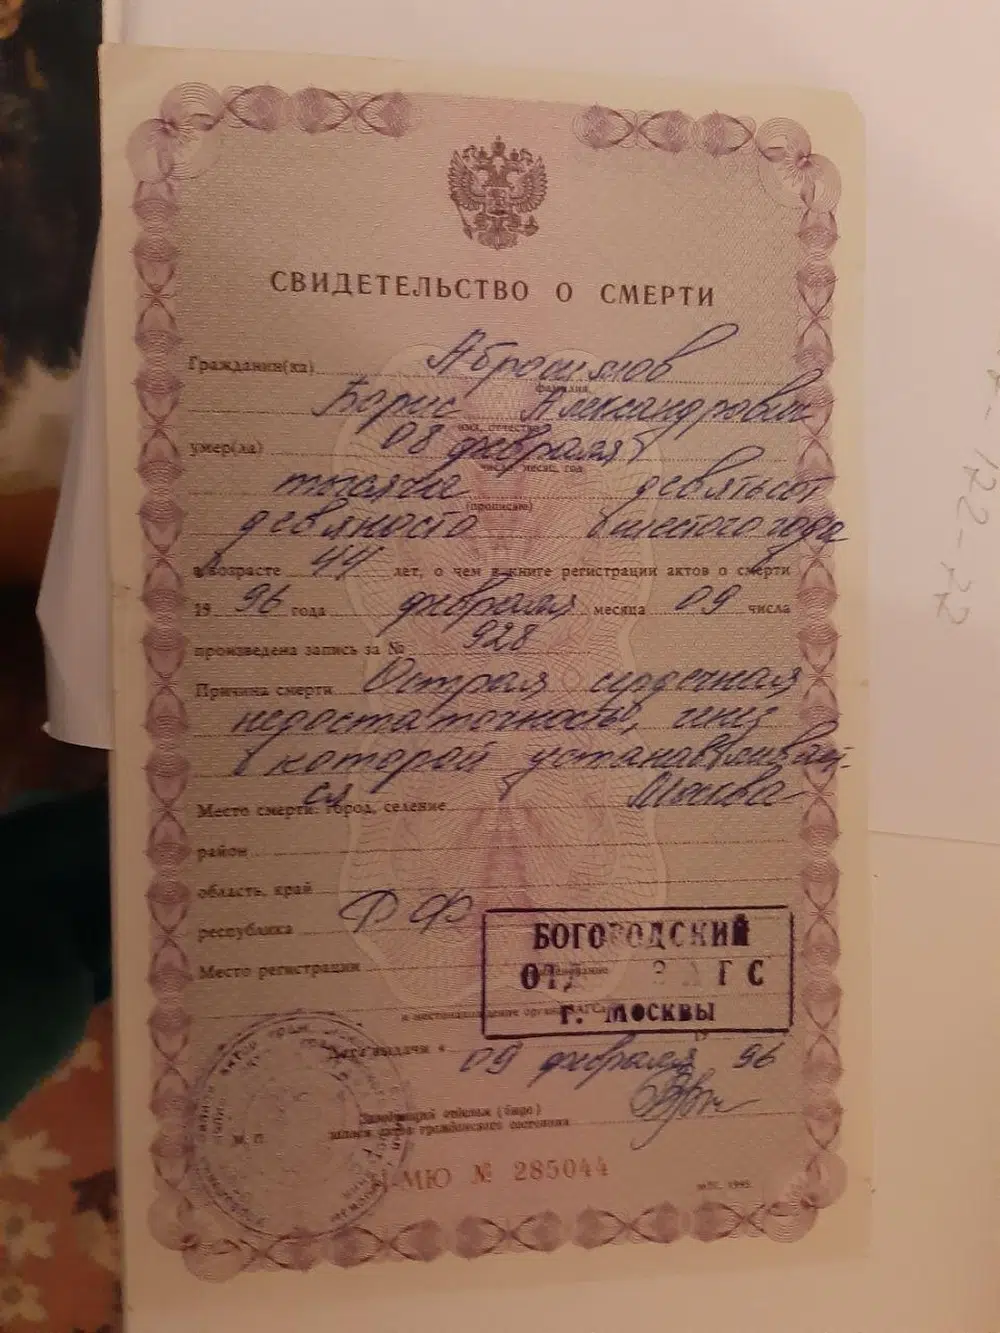 СВИДЕТЕЛЬСТВО О СМЕРТИ
Гражданин(ка) Абросимов
фамилия,
Борис Александрович
имя, отчество
умер(ла) 08 февраля
число, месяц, год
тысяча девятьсот
(прописью)
девяносто шестого года
в возрасте 44 лет, о чем в книге регистрации актов о смерти
19 96 года февраля месяца 09 числа
произведена запись за № 928
Причина смерти Острая сердечная
недостаточность, генез
которой устанавливает-
ся
Место смерти: город, селение Москва
район
область, край
республика РФ
Место регистрации
БОГОРОДСКИЙ
ОТД ЗАГС
Г. МОСКВЫ
Дата выдачи « 09 февраля 19 96
Заведующий отделом (бюро)
записи актов гражданского состояния
М. П.
МЮ № 285044
1995.